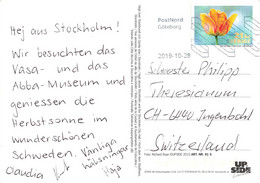 Hej aus Stockholm!
Wir besuchten das
Vasa- und das
Abba-Museum und
geniessen die
Herbstsonne im
wunderschönen
Schweden. Vänliga
hälsningar
Claudia
PostNord
Göteborg
2019-10-28
Schwester Philippa
Theresianum
CH-6440 Ingenbohl
Switzerland
UP
SIDE